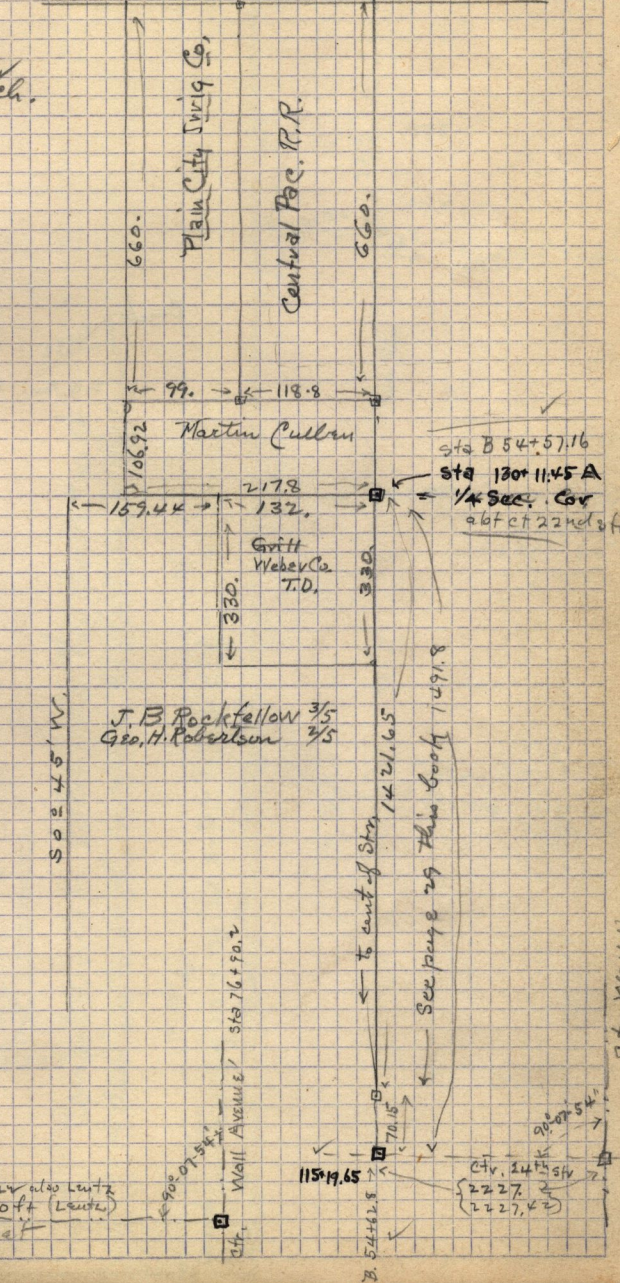 ch.
Plain City Irrig Co,
Central Pac. R.R.
660.
660.
99.
118.8
106.92
Martin Cullen
sta B 54+57.16
sta 130+11.45 A
= 1/4 Sec. Cor
abt ct 22nd
217.8
159.44
132.
Gritt
Weber Co.
T.D.
330.
330.
S 0° 45' W.
J. B. Rockfellow 3/5
Geo. H. Robertson 2/5
1421.65
to cent of Str,
See page 29 this book 1491.8
Ctr. Wall Avenue sta 76+90.2
90°-07'-54"
70.15
115+19.65
B. 54+62.8
Ctr. 24th Str
2227.
(2227.42)
90°-07'-54"
also Lentz
oft (Lentz)